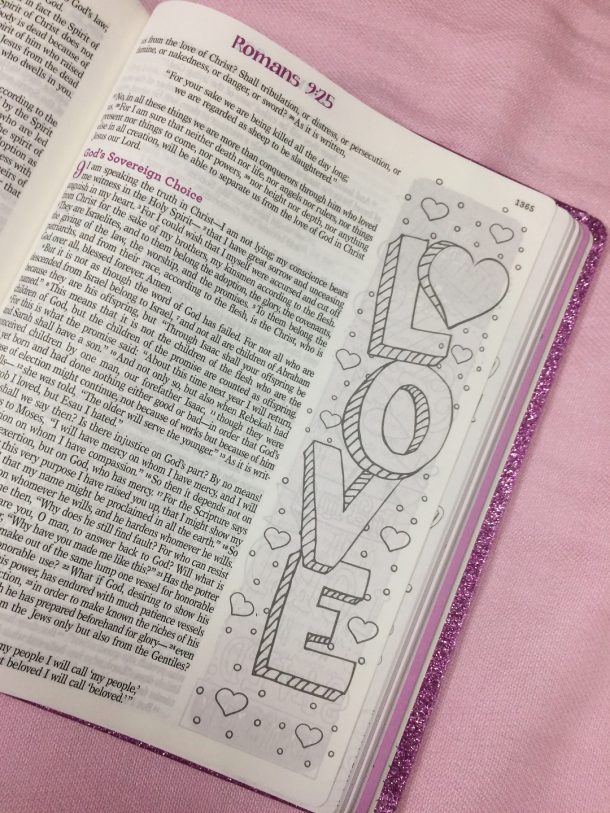 God's law;
in fact the Spirit of
Spirit of Christ does not
body is dead because of
Spirit of him who raised
Jesus from the dead
who dwells in you.
according to the
by the Spirit
who are led
the spirit of
adoption as
with
heirs of
that
Romans 9:25
1365
us from the love of Christ? Shall tribulation, or distress, or persecution, or
famine, or nakedness, or danger, or sword? 36 As it is written,
"For your sake we are being killed all the day long;
we are regarded as sheep to be slaughtered."
37 No, in all these things we are more than conquerors through him who loved
us. 38 For I am sure that neither death nor life, nor angels nor rulers, nor things
present nor things to come, nor powers, 39 nor height nor depth, nor anything
else in all creation, will be able to separate us from the love of God in Christ
Jesus our Lord.
God's Sovereign Choice
9 I am speaking the truth in Christ—I am not lying; my conscience bears
me witness in the Holy Spirit— 2 that I have great sorrow and unceasing
anguish in my heart. 3 For I could wish that I myself were accursed and cut off
from Christ for the sake of my brothers, my kinsmen according to the flesh.
4 They are Israelites, and to them belong the adoption, the glory, the covenants,
the giving of the law, the worship, and the promises. 5 To them belong the
patriarchs, and from their race, according to the flesh, is the Christ, who is
God over all, blessed forever. Amen.
6 But it is not as though the word of God has failed. For not all who are
descended from Israel belong to Israel, 7 and not all are children of Abraham
because they are his offspring, but "Through Isaac shall your offspring be
named." 8 This means that it is not the children of the flesh who are the
children of God, but the children of the promise are counted as offspring.
9 For this is what the promise said: "About this time next year I will return,
and Sarah shall have a son." 10 And not only so, but also when Rebekah had
conceived children by one man, our forefather Isaac, 11 though they were
yet born and had done nothing either good or bad—in order that God's
of election might continue, not because of works but because of him
12 she was told, "The older will serve the younger." 13 As it is writ-
Jacob I loved, but Esau I hated."
shall we say then? Is there injustice on God's part? By no means!
to Moses, "I will have mercy on whom I have mercy, and I will
on whom I have compassion." 16 So then it depends not on
exertion, but on God, who has mercy. 17 For the Scripture says
this very purpose I have raised you up, that I might show my
that my name might be proclaimed in all the earth." 18 So
on whomever he wills, and he hardens whomever he wills.
me then, "Why does he still find fault? For who can resist
are you, O man, to answer back to God? Will what is
"Why have you made me like this?" 21 Has the potter
make out of the same lump one vessel for honorable
honorable use? 22 What if God, desiring to show his
his power, has endured with much patience vessels
23 in order to make known the riches of his
he has prepared beforehand for glory— 24 even
from the Jews only but also from the Gentiles?
my people I will call 'my people,'
beloved I will call 'beloved.'"
LOVE